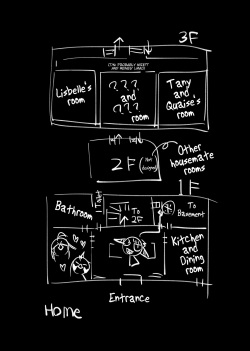 3F
(IT'S PROBABLY MESSY
Lisbelle's
room
???
and
???
room
Tany
and
Quaise's
room
2F (Not
designed)
Other
housemate
rooms
1F
Bathroom
To
2F
To
Basement
Kitchen
and
Dining
room
Entrance
Home